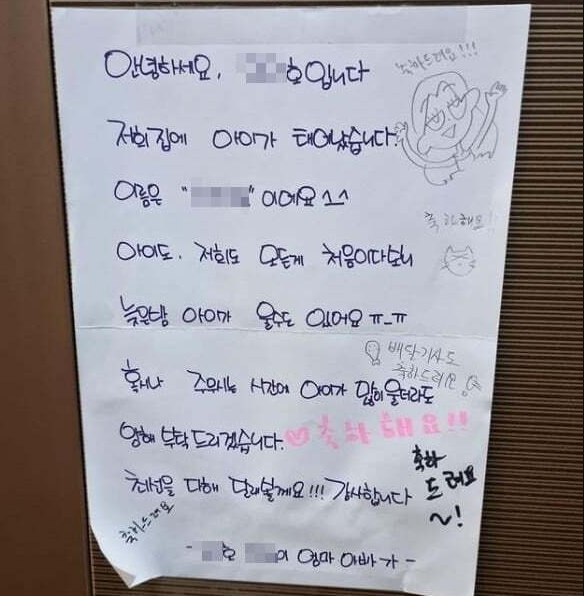 안녕하세요. 호입니다
축하드려요!!!
저희집에 아이가 태어났습니다.
이름은 " " 이에요 ^^
축하해요!
아이도. 저희도 모든게 처음이다보니
늦은밤 아이가 울수도 있어요 ㅠ_ㅠ
배달기사도
축하드려요
혹시나 주무시는 시간에 아이가 많이 울더라도
양해 부탁드리겠습니다. 축하해요!!
축하
드려요
~!
최선을 다해 달래볼게요!!! 감사합니다
축하드려요
- 호 이 엄마 아빠가 -